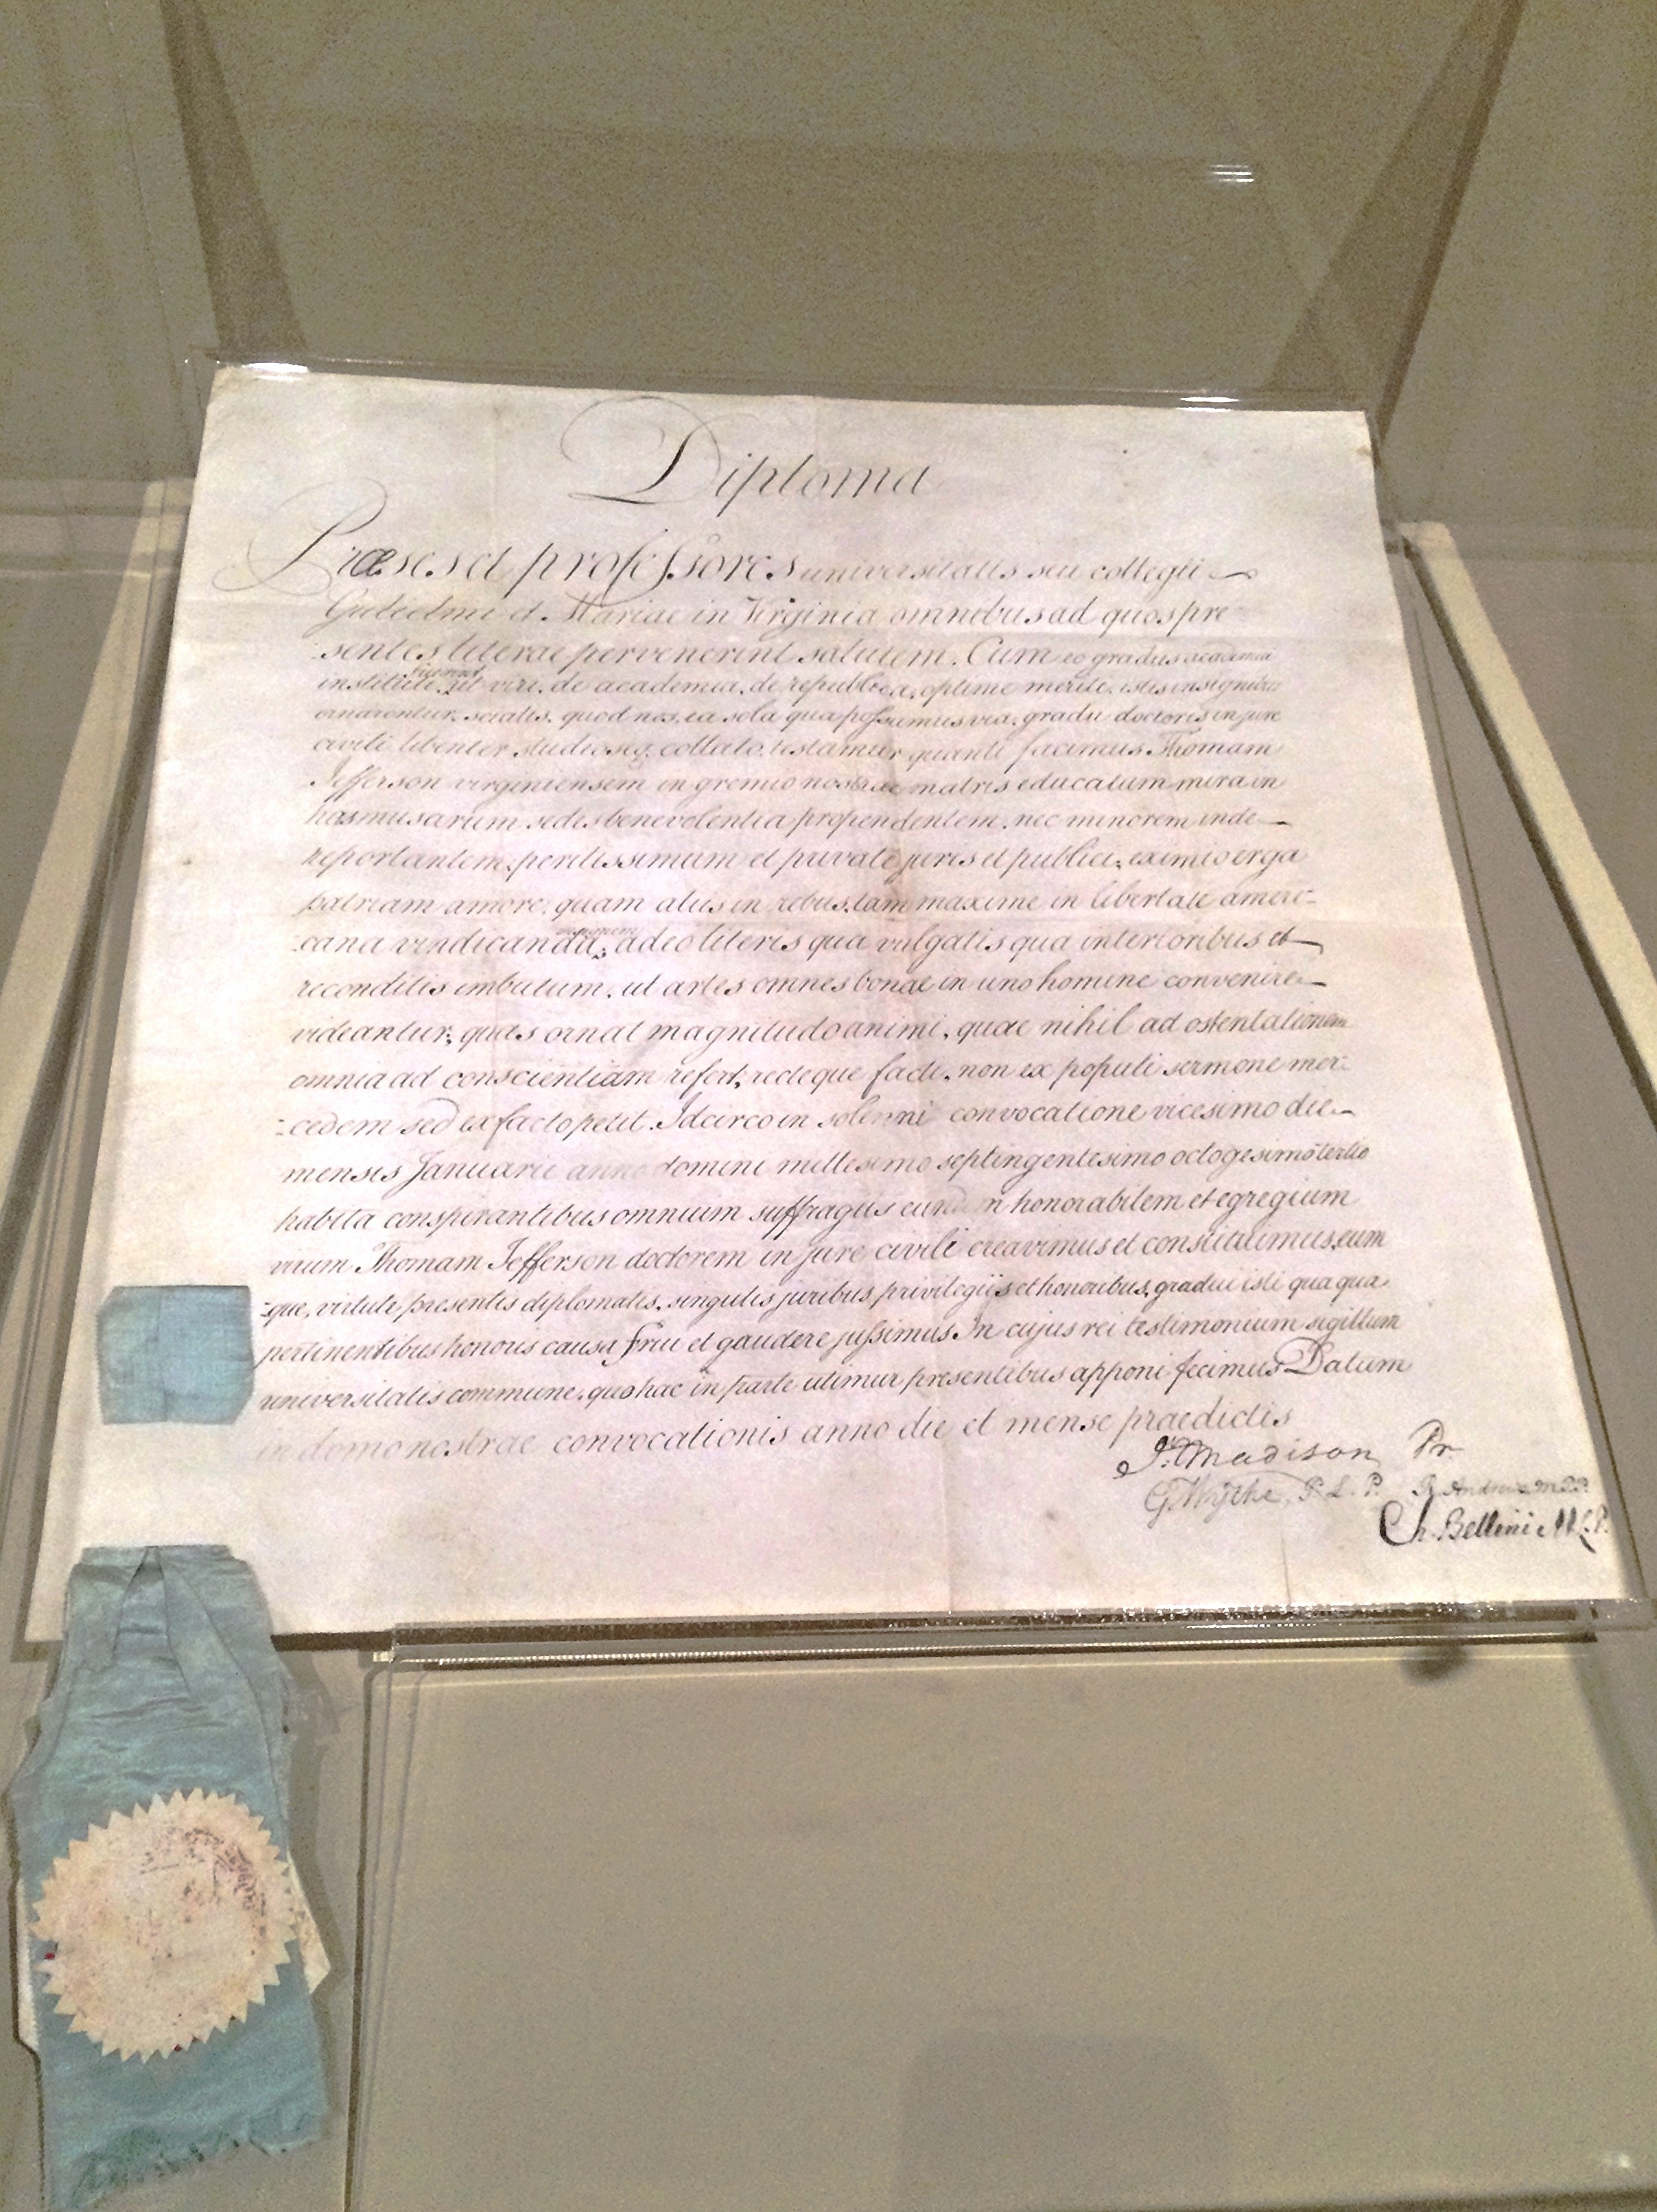 Diploma
Præses et professores universitatis seu collegii
Gulielmi et Mariae in Virginia omnibus ad quos pre
sentes literae pervenerint salutem. Cum eo gradus academici
instituti ut viri, de academia, de republica, optime meriti, istis insignibus
ornarentur, sciatis, quod nos, ea sola qua possumus via, gradu doctoris in jure
civili libenter studioseq. collato, testamur quanti facimus Thomam
Jefferson virginiensem in gremio nostrae matris educatum mira in
has musarum sedes benevolentia propendentem, nec minorem inde
reportantem, peritissimum et privati juris et publici, eximio erga
patriam amore, quam aliis in rebus, tam maxime in libertate ameri-
-cana vindicanda, adeo literis qua vulgatis qua interioribus et
reconditis imbutum, ut artes omnes bonae in uno homine convenire
videantur; quas ornat magnitudo animi, quae nihil ad ostentationem
omnia ad conscientiam refert, recteque facti, non ex populi sermone mer-
-cedem sed ex facto petit. Idcirco in solenni convocatione vicesimo die
mensis Januarii anno domini millesimo septingentesimo octogesimo tertio
habita conspirantibus omnium suffragiis eundem honorabilem et egregium
virum Thomam Jefferson doctorem in jure civili creavimus et constituimus, eum
-que, virtute presentis diplomatis, singulis juribus, privilegiis et honoribus, gradui isti quaqua
pertinentibus honoris causa frui et gaudere jussimus In cujus rei testimonium sigillum
universitatis commune, quo hac in parte utimur presentibus apponi fecimus Datum
in domo nostrae convocationis anno die et mense praedictis
J. Madison Pr.
G. Wythe, P. L. P. R. Andrews M.P.P.
Ch. Bellini M.L.P.